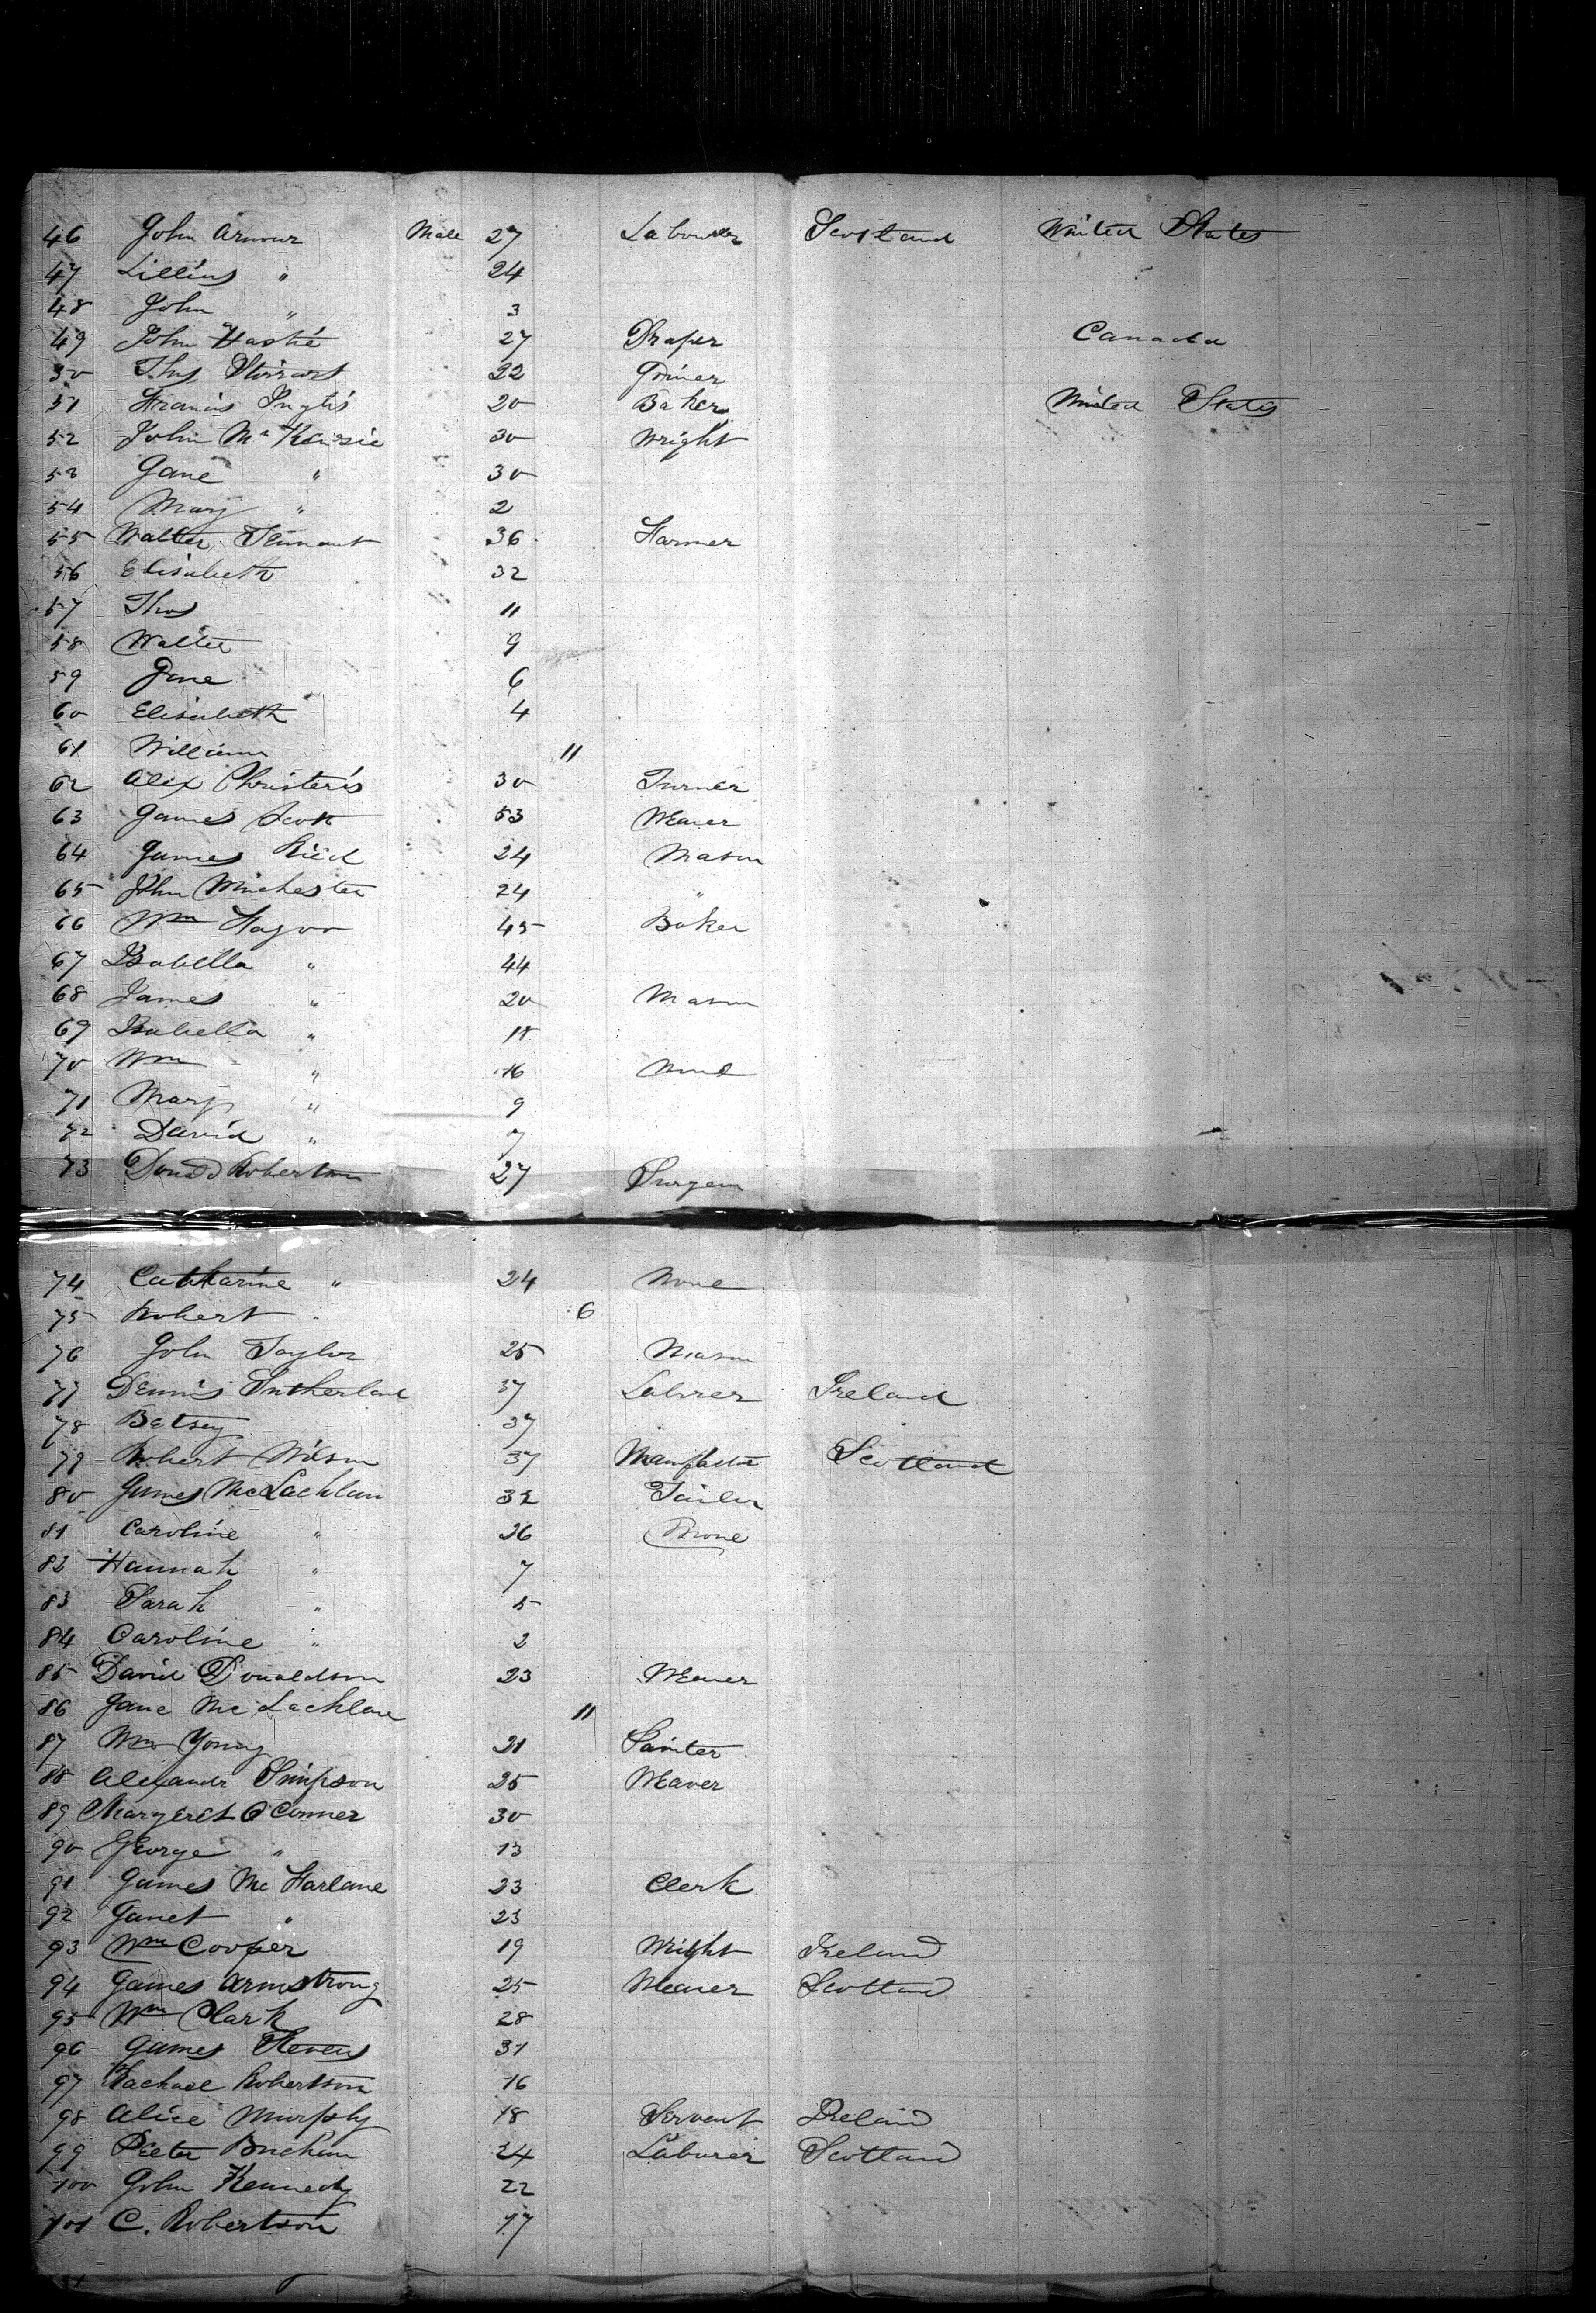 46 John Armour Male 27 Labourer Scotland United States
47 Lillius " 24
48 John " 3
49 John Hastie 27 Draper Canada
50 Thos 22
51 Francis Inglis 20 Baker United States
52 John McKensie 30 Wright
53 Jane " 30
54 Mary " 2
55 Walter Tennant 36 Farmer
56 Elisabeth 32
57 Thos 11
58 Walter 9
59 Jane 6
60 Elisabeth 4
61 William 11
62 Alex 30 Turner
63 James Scott 53 Weaver
64 James Reid 24 Mason
65 John Winchester 24 "
66 Wm 45 Baker
67 Isabella " 44
68 James " 20 Mason
69 Isabella " 18
70 Wm " 16 None
71 Mary " 9
72 David " 7
73 Robertson 27 Surgeon
74 Catharine " 24 None
75 Robert " 6
76 John Taylor 25 Mason
77 Dennis Sutherland 37 Laborer Ireland
78 Betsey 37
79 Robert Wilson 37 Scotland
80 James McLachlan 32 Tailor
81 Caroline " 26 None
82 Hannah " 7
83 Sarah " 5
84 Caroline " 2
85 David Donaldson 23 Weaver
86 Jane McLachlan 11
87 Young 21 Painter
88 Alexander Simpson 25 Weaver
89 Margeret O Conner 30
90 George " 13
91 James McFarlane 23 Clerk
92 Janet " 23
93 Wm Cooper 19 Wright Ireland
94 James Armstrong 25 Weaver Scotland
95 Wm Clark 28
96 James Stevens 31
97 Rachael Robertson 16
98 Alice Murphy 18 Servant Ireland
99 Peeter Buchan 24 Laborer Scotland
100 John Kennedy 22
101 C. Robertson 17